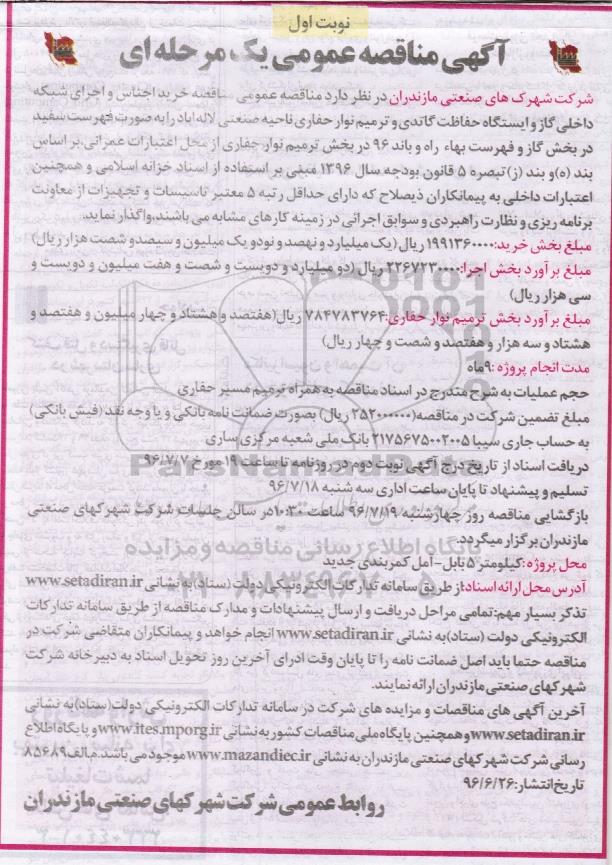 نوبت اول
آگهی مناقصه عمومی یک مرحله ای
شرکت شهرک های صنعتی مازندران در نظر دارد مناقصه عمومی مناقصه خرید اجناس و اجرای شبکه
داخلی گاز و ایستگاه حفاظت کاتدی و ترمیم نوار حفاری ناحیه صنعتی لاله اباد را به صورت فهرست سفید
در بخش گاز و فهرست بهاء راه و باند ۹۶ در بخش ترمیم نوار حفاری از محل اعتبارات عمرانی، بر اساس
بند (ه) و بند (ز) تبصره ۵ قانون بودجه سال ۱۳۹۶ مبنی بر استفاده از اسناد خزانه اسلامی و همچنین
اعتبارات داخلی به پیمانکاران ذیصلاح که دارای حداقل رتبه ۵ معتبر تاسیسات و تجهیزات از معاونت
برنامه ریزی و نظارت راهبردی و سوابق اجرائی در زمینه کارهای مشابه می باشند، واگذار نماید:
مبلغ بخش خرید: ۱۹۹۱۳۶۰۰۰۰ ریال (یک میلیارد و نهصد و نود و یک میلیون و سیصد و شصت هزار ریال)
مبلغ برآورد بخش اجرا: ۲۲۶۷۲۳۰۰۰۰ ریال (دو میلیارد و دویست و شصت و هفت میلیون و دویست و
سی هزار ریال)
مبلغ برآورد بخش ترمیم نوار حفاری: ۷۸۴۷۸۳۷۶۴ ریال (هفتصد و هشتاد و چهار میلیون و هفتصد و
هشتاد و سه هزار و هفتصد و شصت و چهار ریال)
مدت انجام پروژه: ۹ ماه
حجم عملیات به شرح مندرج در اسناد مناقصه به همراه ترمیم مسیر حفاری
مبلغ تضمین شرکت در مناقصه (۲۵۲۰۰۰۰۰۰ ریال) بصورت ضمانت نامه بانکی و یا وجه نقد (فیش بانکی)
به حساب جاری سیبا ۲۱۷۵۶۷۵۰۰۲۰۰۵ بانک ملی شعبه مرکزی ساری
دریافت اسناد از تاریخ درج آگهی نوبت دوم در روزنامه تا ساعت ۱۹ مورخ ۹۶/۷/۷
تسلیم و پیشنهاد تا پایان ساعت اداری سه شنبه ۹۶/۷/۱۸
بازگشایی مناقصه روز چهارشنبه ۹۶/۷/۱۹ ساعت ۱۰:۳۰ در سالن جلسات شرکت شهرکهای صنعتی
مازندران برگزار میگردد.
محل پروژه: کیلومتر ۵ بابل - آمل کمربندی جدید
آدرس محل ارائه اسناد: از طریق سامانه تدارکات الکترونیکی دولت (ستاد) به نشانی www.setadiran.ir
تذکر بسیار مهم: تمامی مراحل دریافت و ارسال پیشنهادات و مدارک مناقصه از طریق سامانه تدارکات
الکترونیکی دولت (ستاد) به نشانی www.setadiran.ir انجام خواهد و پیمانکاران متقاضی شرکت در
مناقصه حتما باید اصل ضمانت نامه را تا پایان وقت ادرای آخرین روز تحویل اسناد به دبیرخانه شرکت
شهرکهای صنعتی مازندران ارائه نمایند.
آخرین آگهی های مناقصات و مزایده های شرکت در سامانه تدارکات الکترونیکی دولت (ستاد) به نشانی
www.setadiran.ir و همچنین پایگاه ملی مناقصات کشور به نشانی www.ites.mporg.ir و پایگاه اطلاع
رسانی شرکت شهرکهای صنعتی مازندران به نشانی www.mazandiec.ir موجود می باشد. م.الف ۸۵۶۸۹
تاریخ انتشار: ۹۶/۶/۲۶
روابط عمومی شرکت شهرکهای صنعتی مازندران
ParsNamadData
پایگاه اطلاع رسانی مناقصه و مزایده